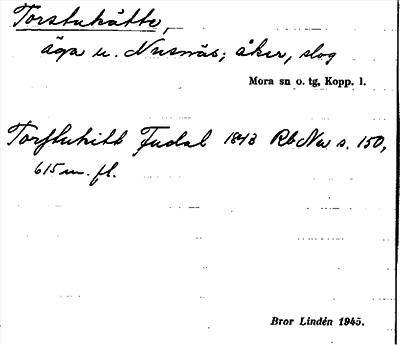 Torstukätte,
äga u. Nusnäs; åker, slog
Mora sn o. tg, Kopp. l.
Torstukitt 1843 Rb Nu s. 150,
615 m. fl.
Bror Lindén 1945.